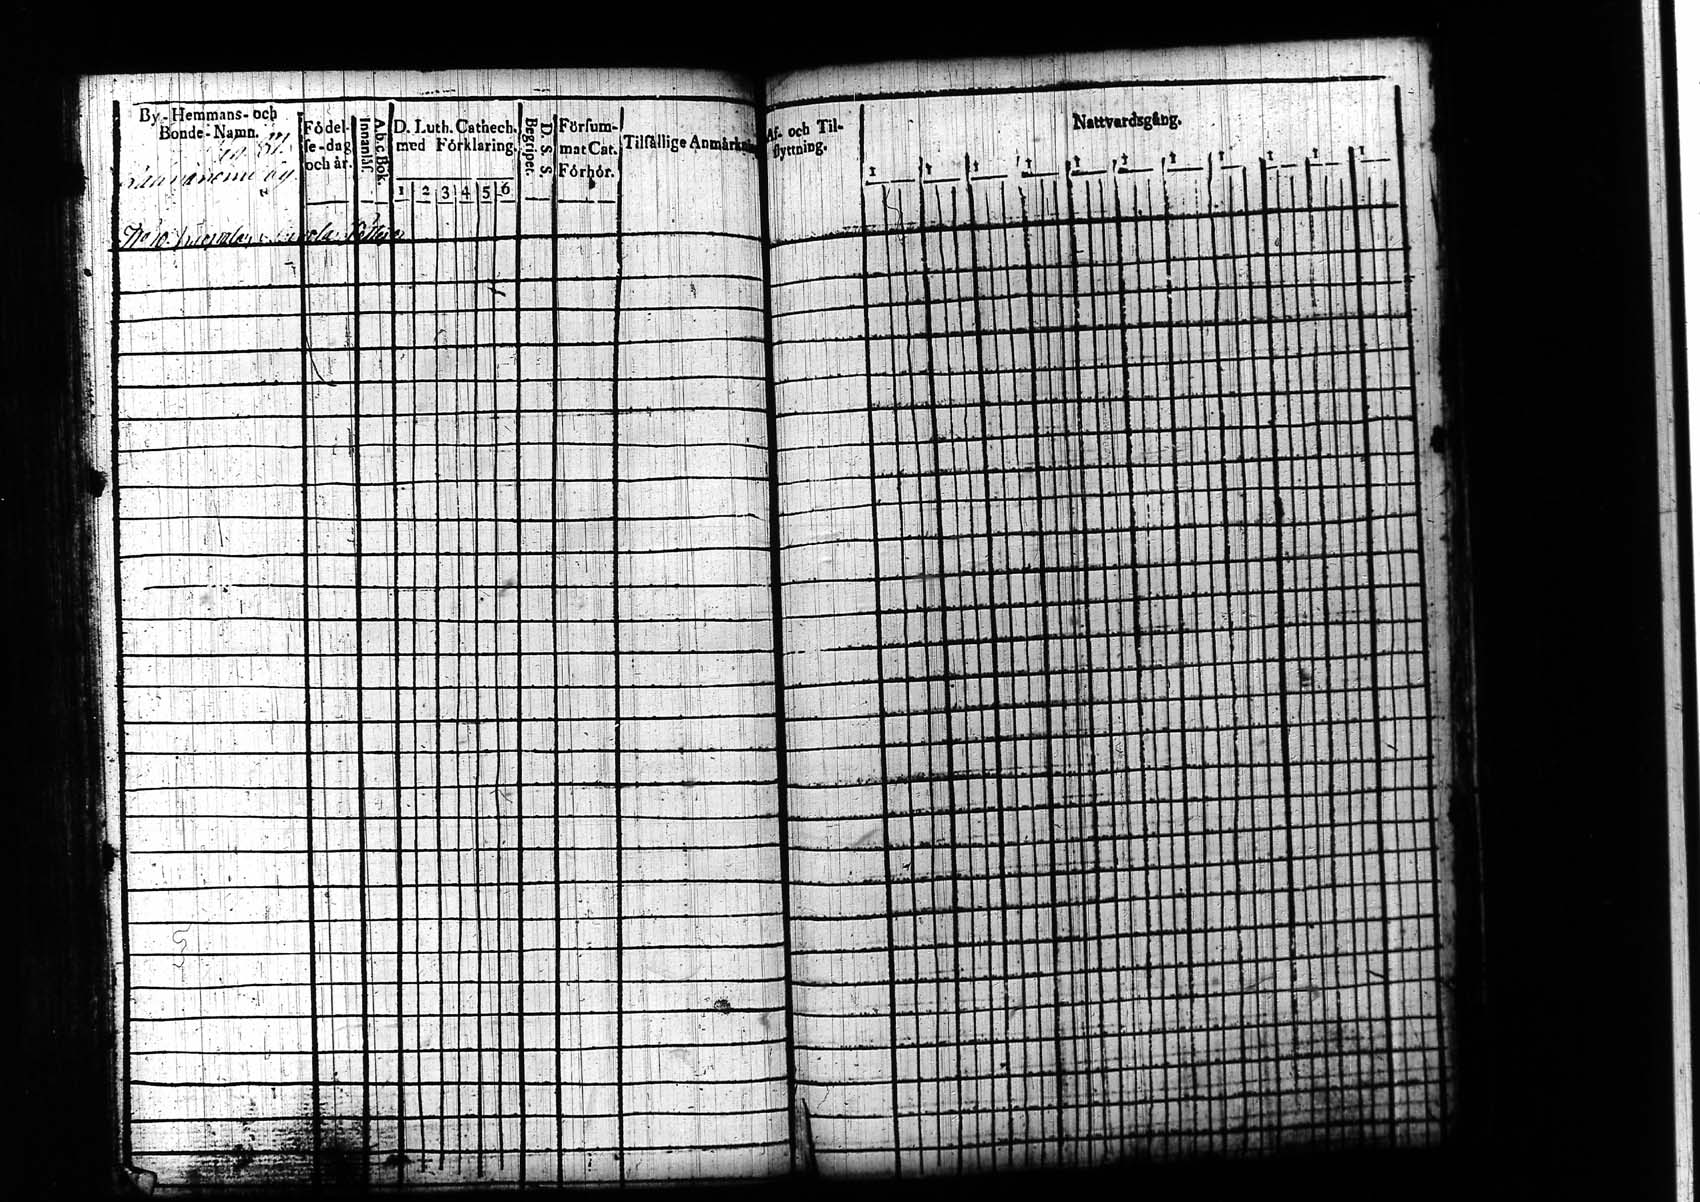 By-Hemmans-och
Bonde-Namn.
Födel-
se-dag
och år.
Innanläs.
A.b.c Bok.
D. Luth. Cathech.
med Förklaring.
1 2 3 4 5 6
Begriper.
D. S. S.
Försum-
mat Cat.
Förhör.
Tilfällige Anmärkn
Af- och Til-
flyttning.
Nattvardsgång.
1 1 1 1 1 1 1 1 1 1 1
No 10.